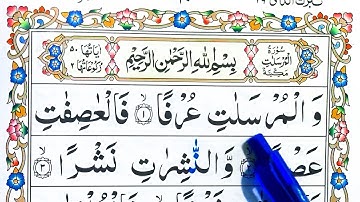 سُوْرَةُ الْمُرْسَلٰتِ مَكِّيَّةٌ
بِسْمِ اللّٰهِ الرَّحْمٰنِ الرَّحِیْمِ
اٰیَاتُهَا ٥٠ رُكُوْعَاتُهَا ٢
وَ الْمُرْسَلٰتِ عُرْفًا ۝١ فَالْعٰصِفٰتِ
عَصْفًا ۝٢ وَّالنّٰشِرٰتِ نَشْرًا ۝٣